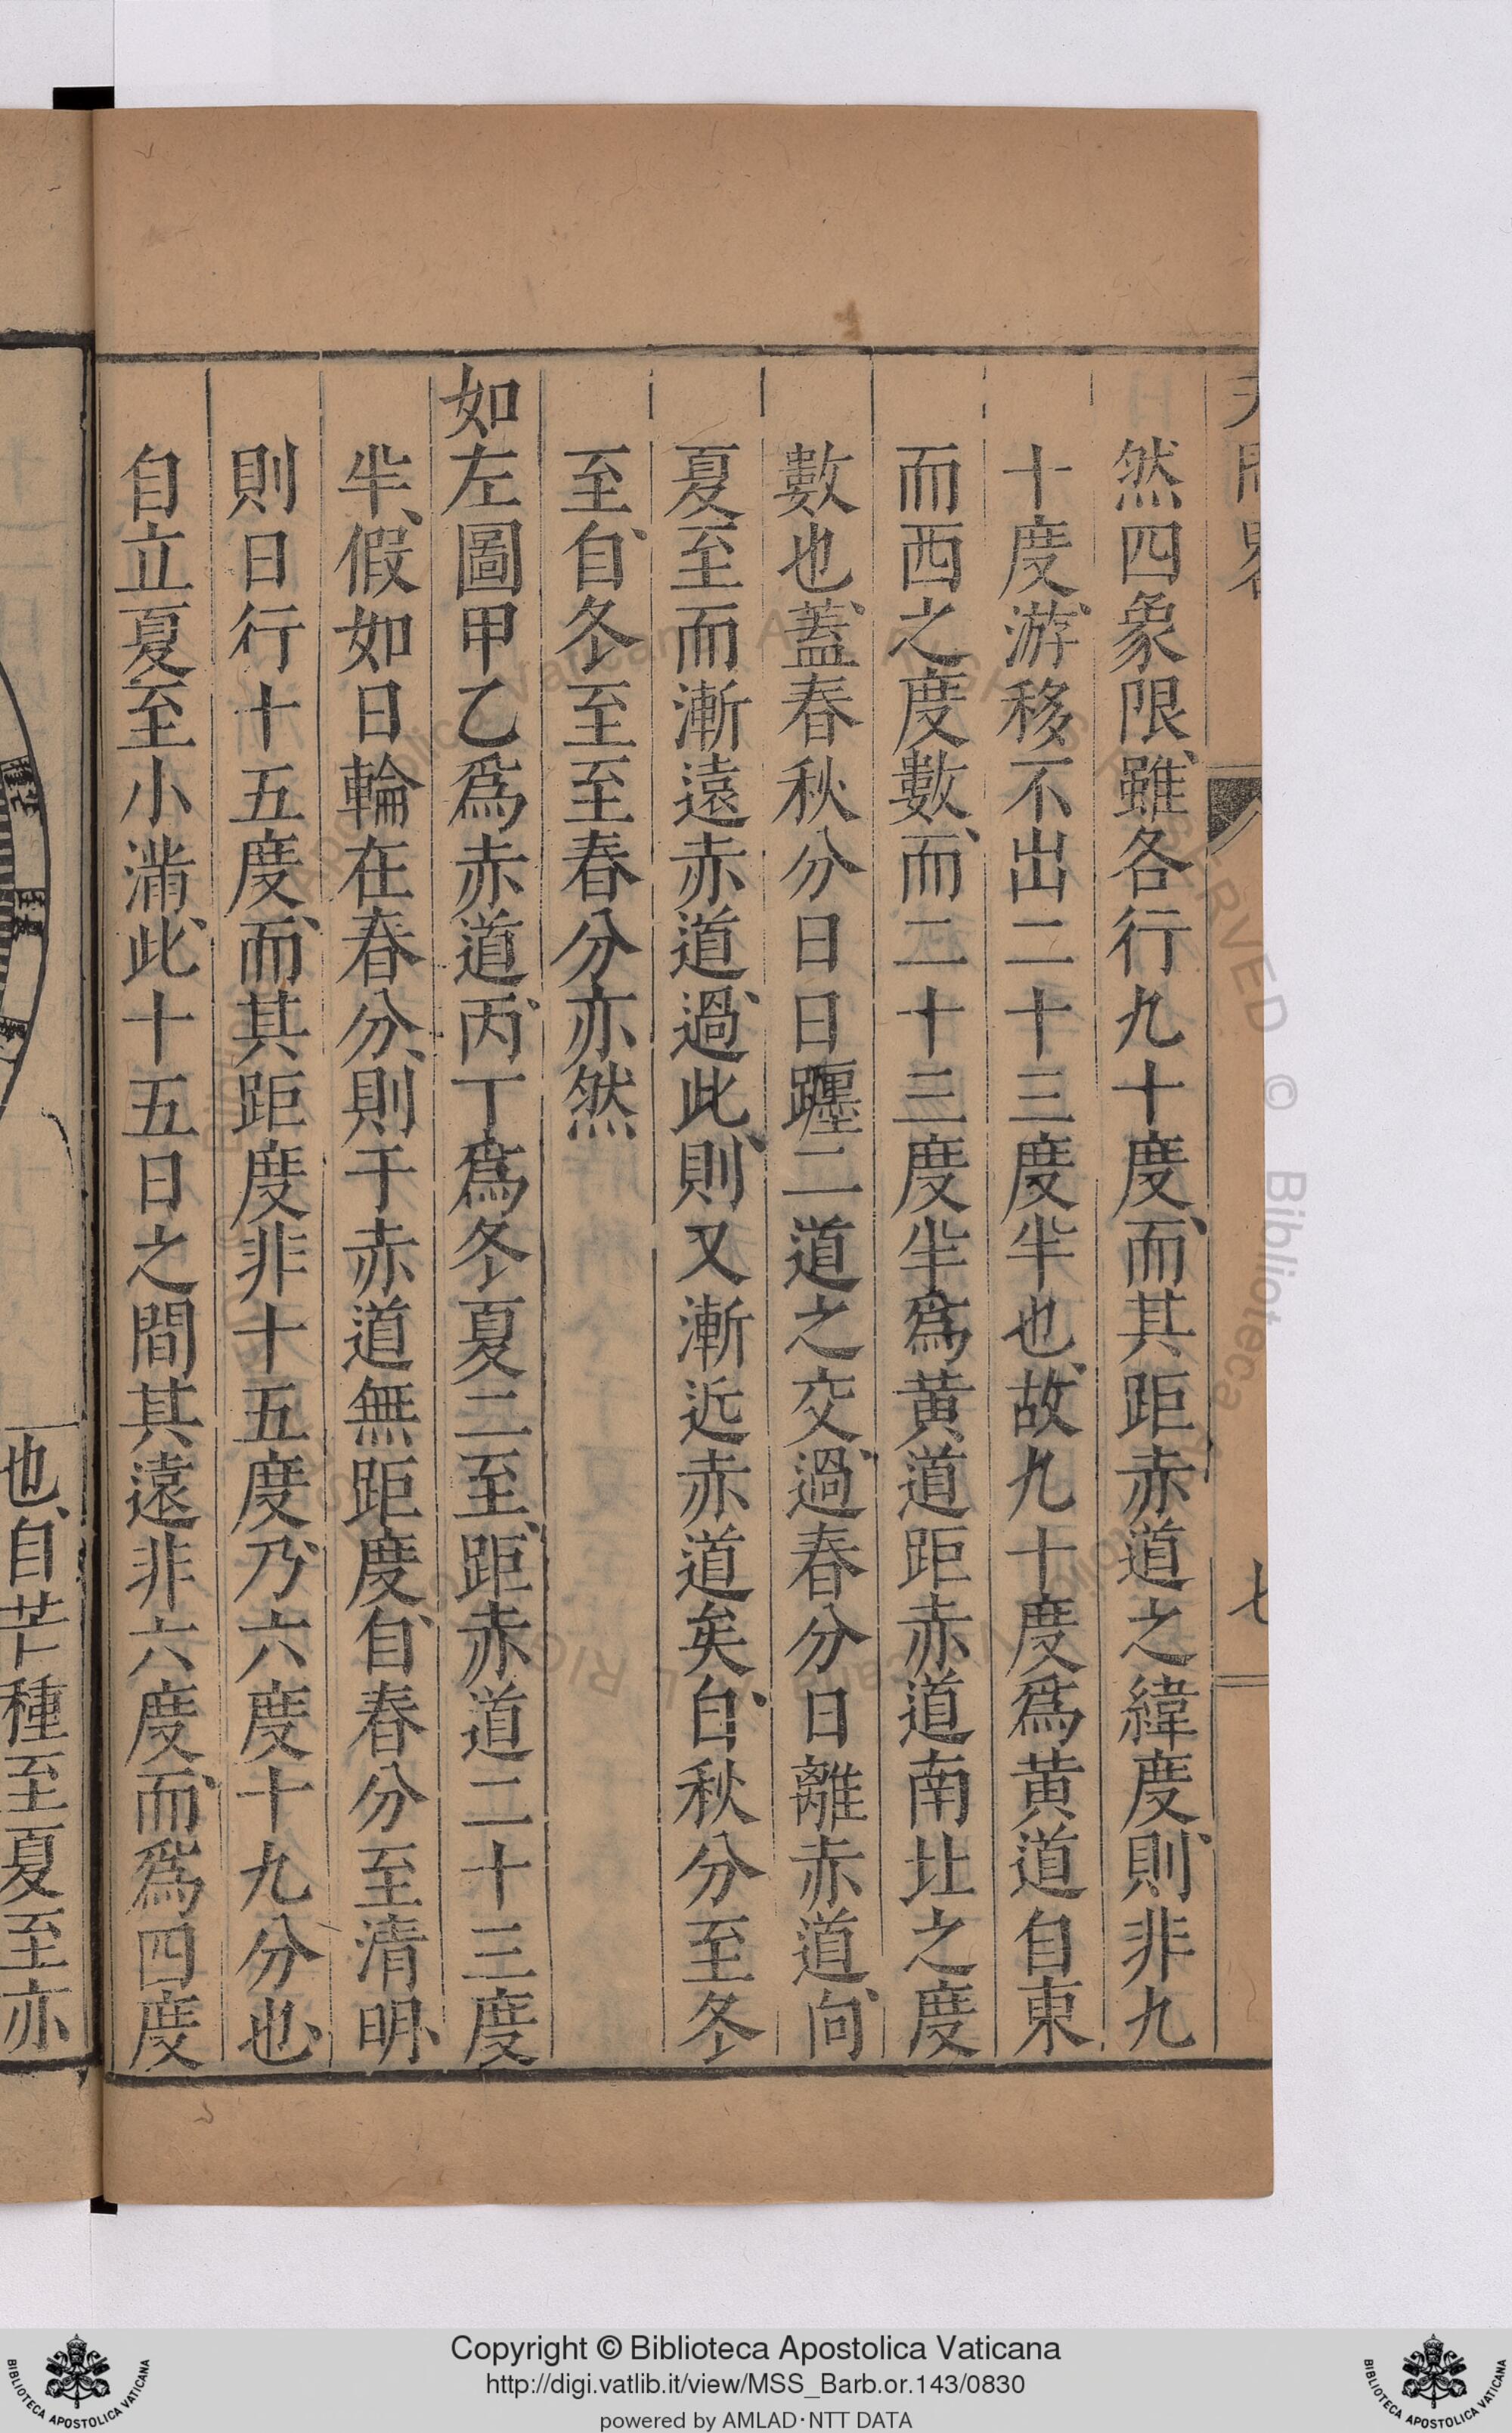 然四象限、雖各行九十度、而其距赤道之緯度、則非九
十度、游移不出二十三度半也、故九十度爲黃道自東
而西之度數、而二十三度半爲黃道距赤道南北之度
數也、蓋春秋分日日躔二道之交、過春分日離赤道、向
夏至而漸遠赤道、過此、則又漸近赤道矣、自秋分至冬
至、自冬至至春分亦然
如左圖甲乙爲赤道、丙丁爲冬夏二至、距赤道二十三度
半、假如日輪在春分、則于赤道無距度、自春分至清明、
則日行十五度、而其距度非十五度、乃六度十九分也、
自立夏至小滿、此十五日之間其遠非六度、而爲四度
也、自芒種至夏至亦
Copyright © Biblioteca Apostolica Vaticana
http://digi.vatlib.it/view/MSS_Barb.or.143/0830
powered by AMLAD·NTT DATA
BIBLIOTECA APOSTOLICA VATICANA
BIBLIOTECA APOSTOLICA VATICANA